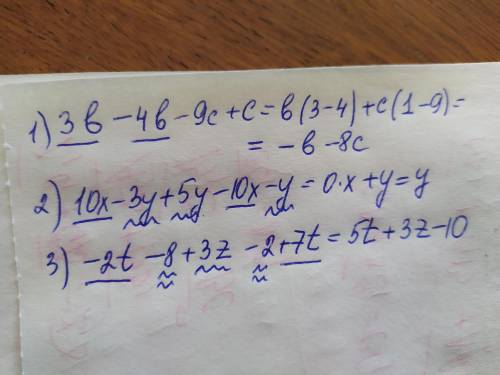 1) 3в - 4в - 9с + с = в(3-4) + с(1-9) =
= -в - 8с
2) 10x - 3y + 5y - 10x - y = 0·x + y = y
3) -2t - 8 + 3z - 2 + 7t = 5t + 3z - 10